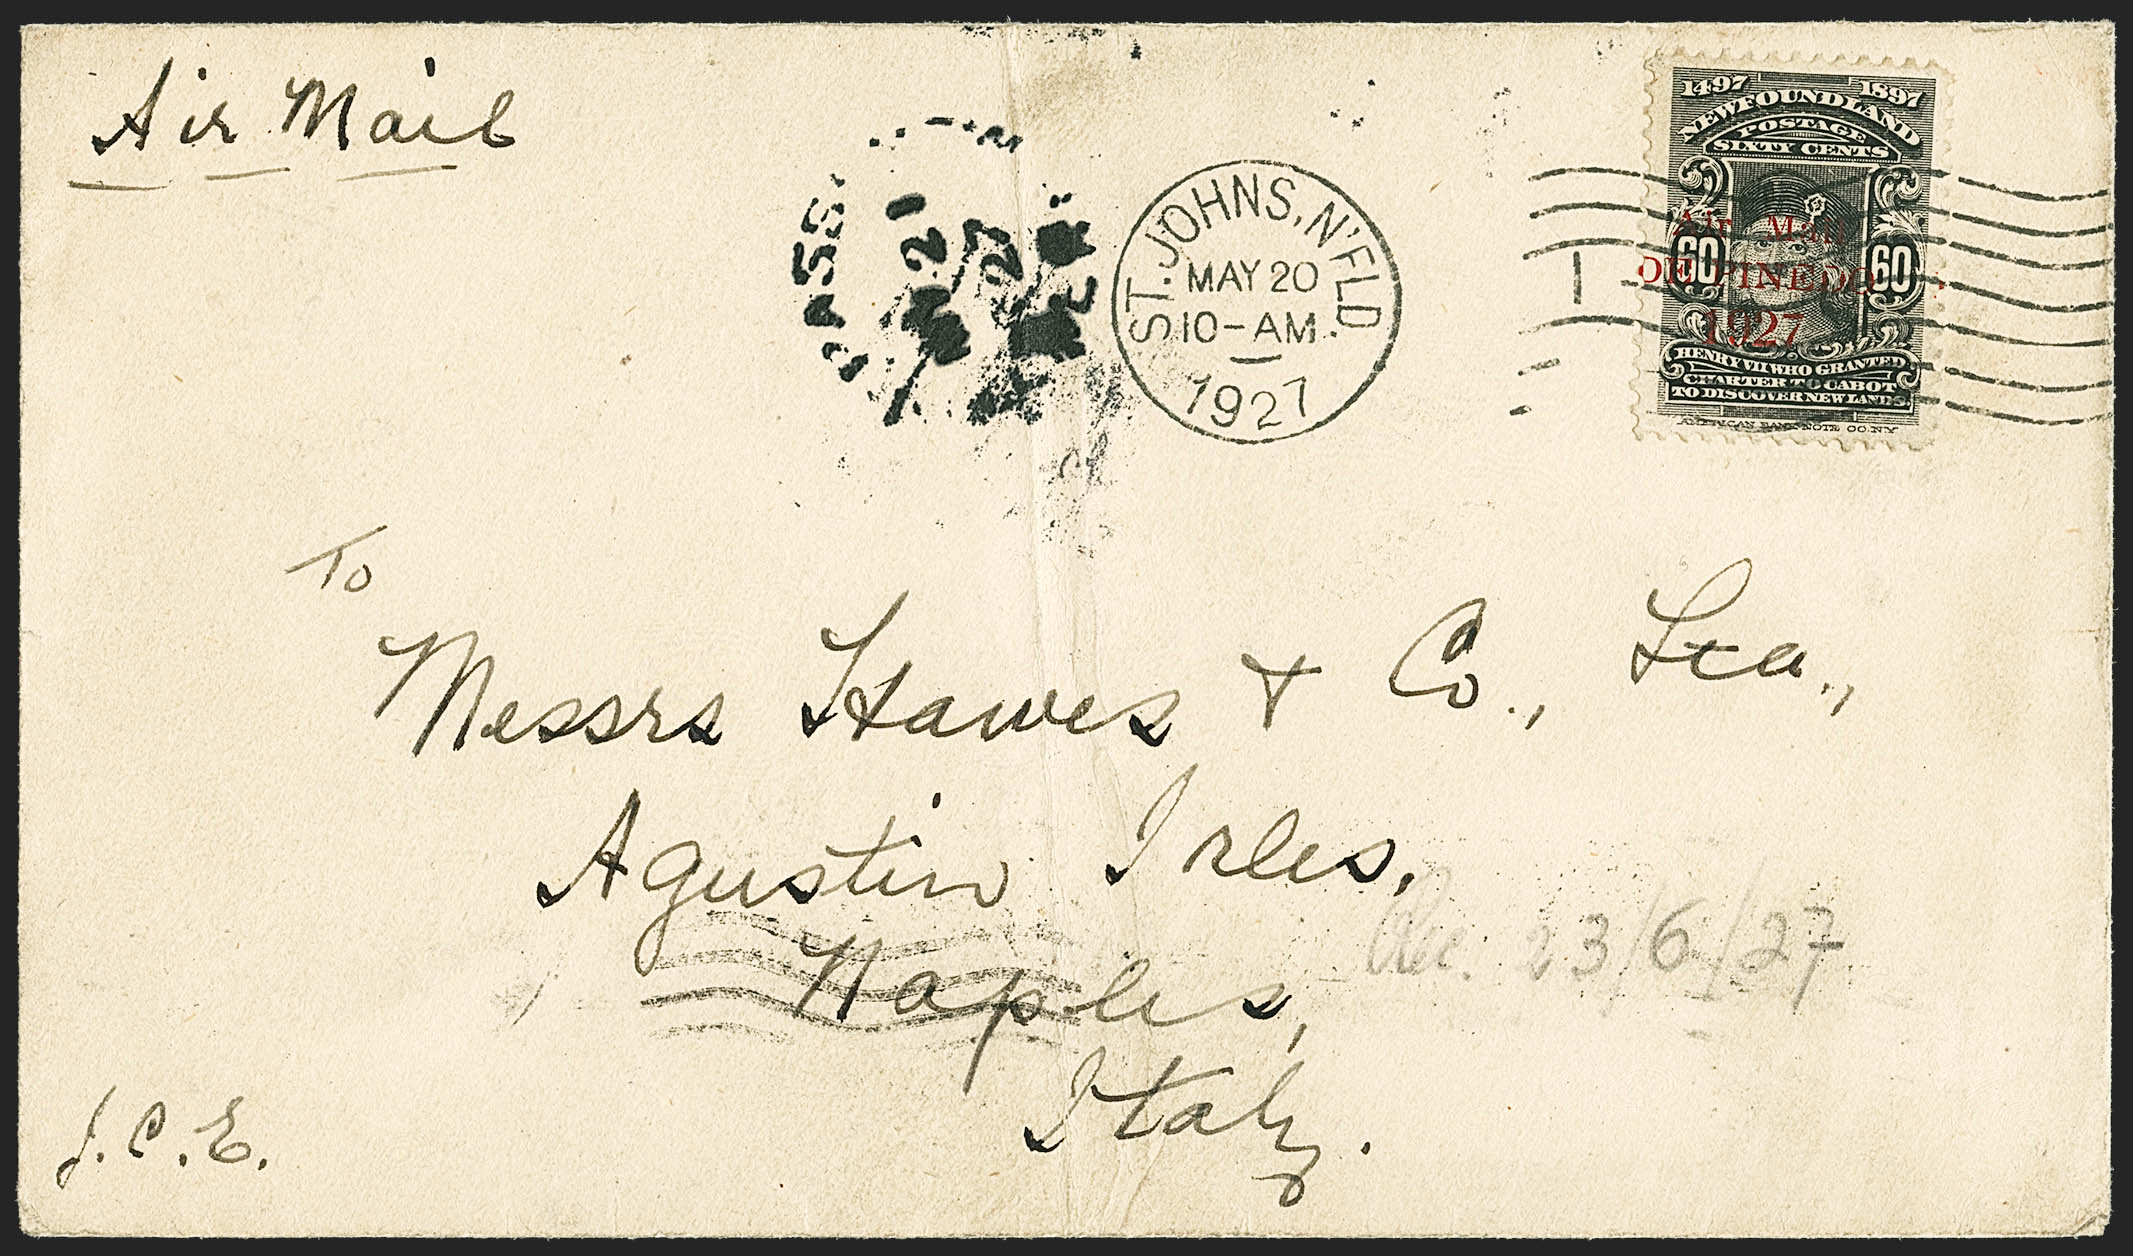 Air Mail
PASS.
21
27
ST. JOHNS, N'FLD
MAY 20
10-AM.
1927
1497 1897
NEWFOUNDLAND
POSTAGE
SIXTY CENTS
Air Mail
60 60
DE PINEDO
1927
HENRY VII WHO GRANTED
CHARTER TO CABOT
TO DISCOVER NEW LANDS.
AMERICAN BANK NOTE CO. N.Y.
To
Messrs Hawes & Co., Lca.,
Agustin Irles.
Rec. 23/6/27
Naples,
Italy.
J.C.E.